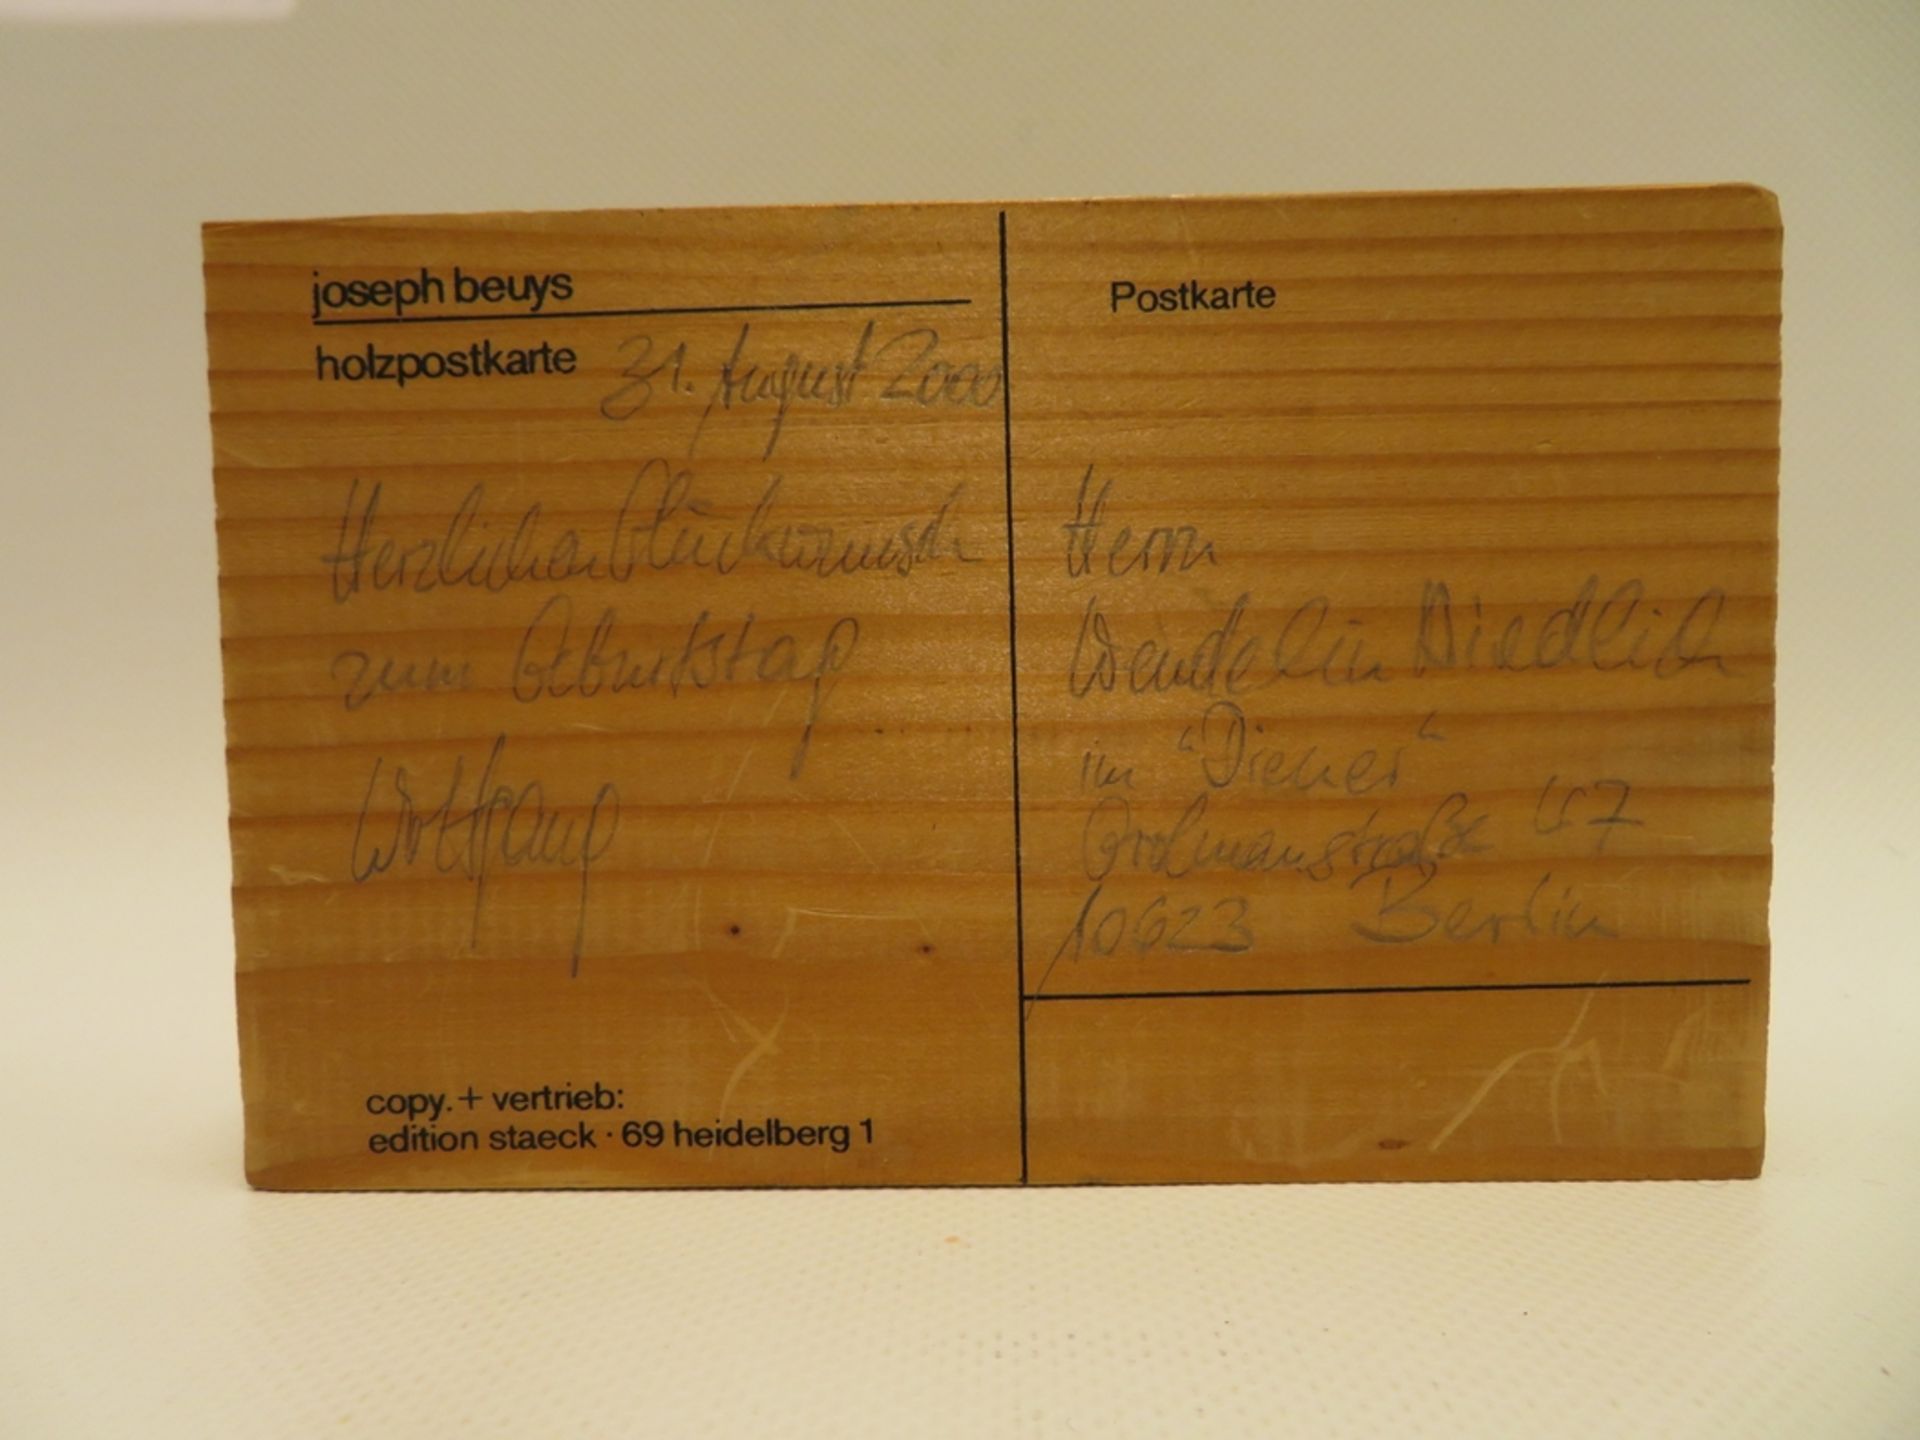 joseph beuys
holzpostkarte 31. August 2000
Herzlichen Glückwunsch
zum Geburtstag
Wolfgang
copy. + vertrieb:
edition staeck · 69 heidelberg 1
Postkarte
Herrn
Wendelin Niedlich
im "Diener"
Grolmanstraße 47
10623 Berlin